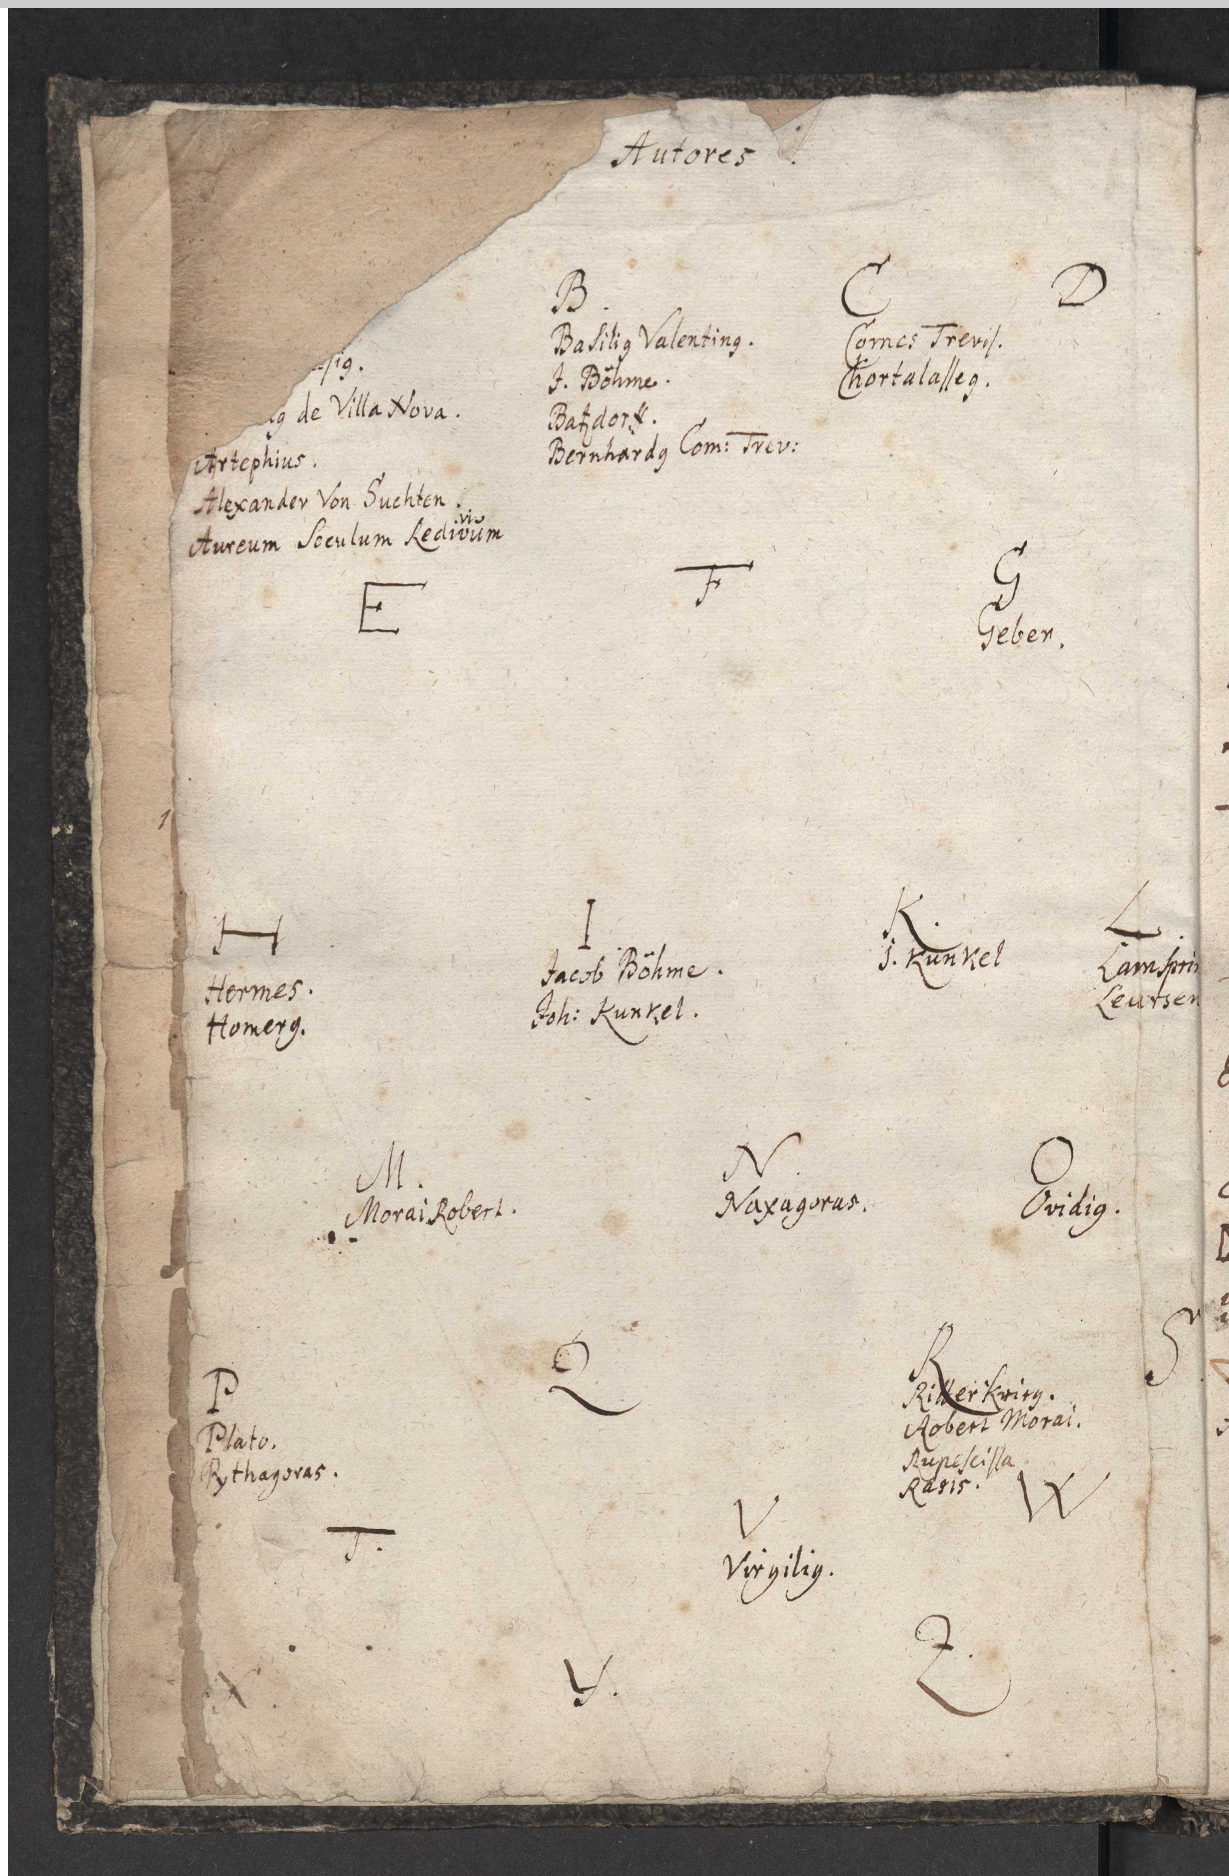 Autores.
de Villa Nova.
Artephius.
Alexander Von Suchten.
Aureum Soeculum Redivivum
B.
Basilig Valenting.
J. Böhme.
Batzdorff.
Bernhardg Com: Trev:
C
Comes Trevis.
Chortalasseg.
D
E
F
G
Geber.
H
Hermes.
Homerg.
I
Jacob Böhme.
Joh: Kunkel.
K.
J. Kunkel
L.
Lamspri
Leursen
M.
Morai Robert.
N.
Naxagoras.
O
Ovidig.
P
Plato.
Pythagoras.
Q
R
Ritterkrieg.
Robert Morai.
Rupescissa
Rasis.
S
T.
V
Virgilig.
W
X
Y.
Z.
1